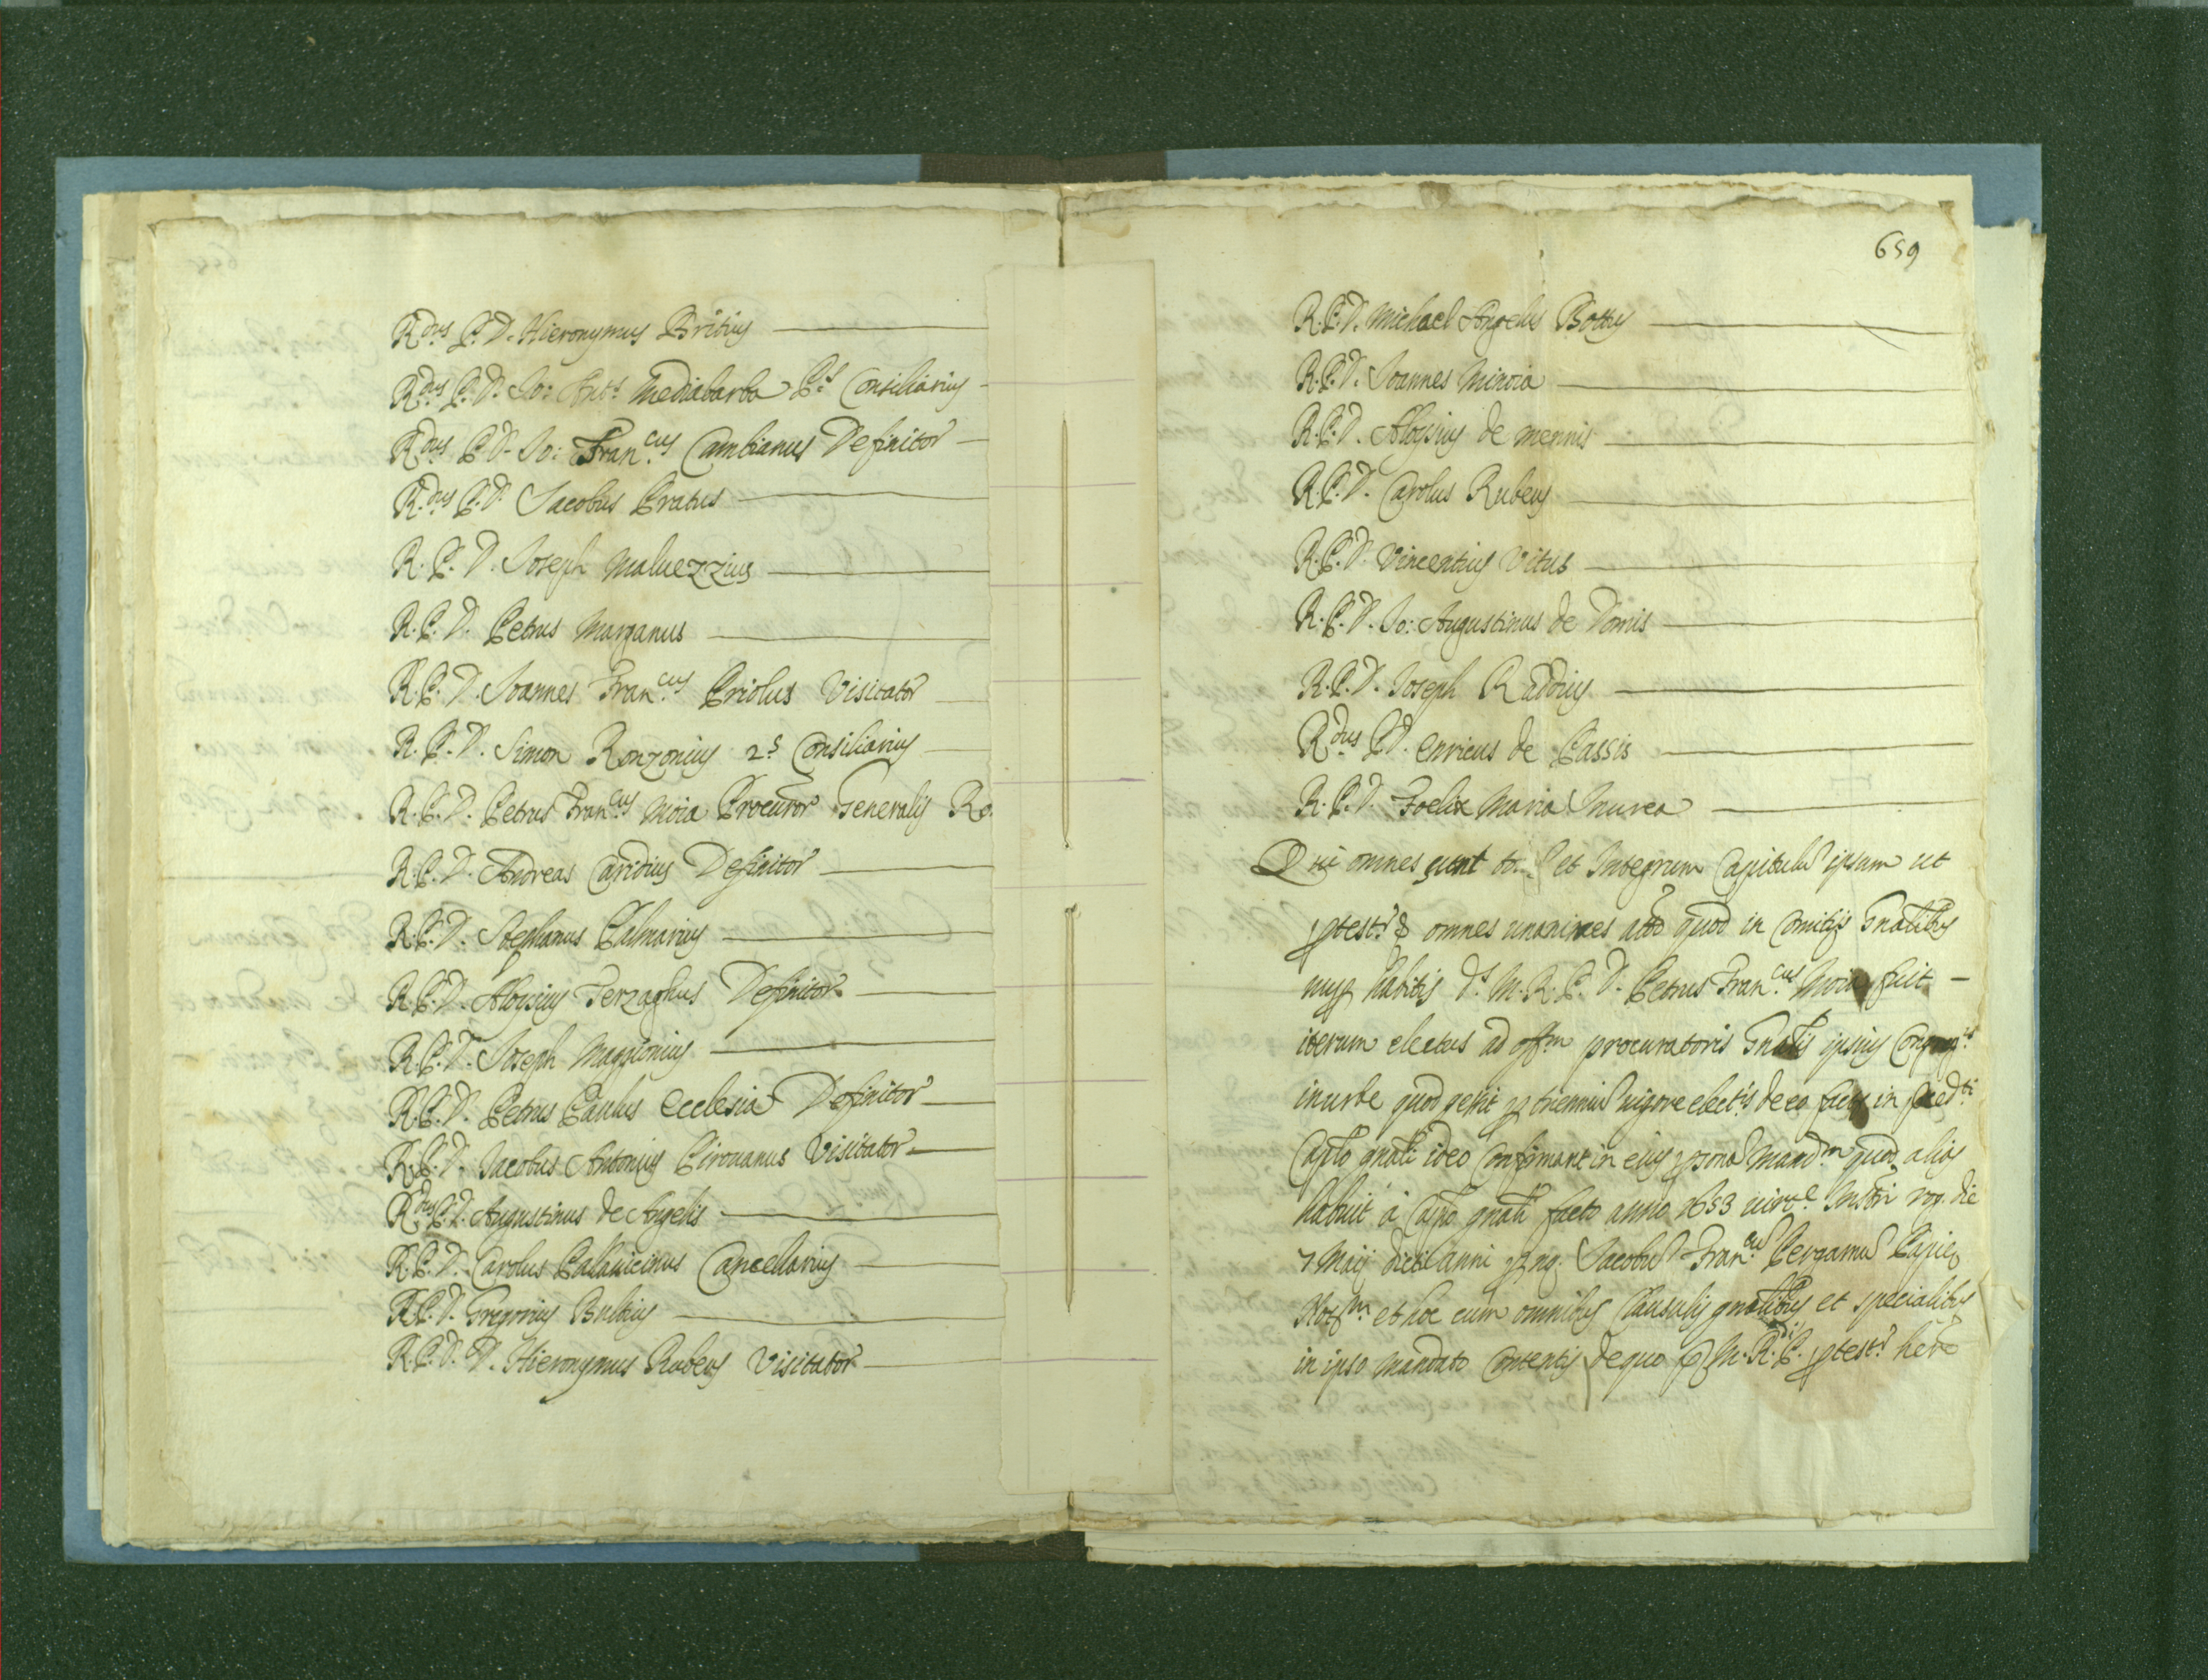 R.dus P. D. Hieronymus Britius
R.dus P. D. Io: Ant.s Mediabarba P.s Consiliarius
R.dus P. D. Io: Fran.cus Cambianus Definitor
R.dus P. D. Jacobus Pratus
R. P. D. Joseph Maluezzius
R. P. D. Petrus Marzanus
R. P. D. Joannes Fran.cus Priolus Visitator
R. P. D. Simon Ronzonius 2.s Consiliarius
R. P. D. Petrus Fran.cus Moia Procuror Generalis Ro.
R. P. D. Andreas Caridius Definitor
R. P. D. Stephanus Palmarius
R. P. D. Aloysius Terzaghus Definitor
R. P. D. Joseph Maggionius
R. P. D. Petrus Paulus Ecclesia Definitor
R. P. D. Jacobus Antonius Pirouanus Visitator
R.dus P. D. Augustinus de Angelis
R. P. D. Carolus Pallauicinus Cancellarius
R. P. D. Gregorius Bulbius
R. P. D. D. Hieronymus Rubeus Visitator
659
R. P. D. Michael Angelus Bottus
R. P. D. Joannes Minoia
R. P. D. Aloysius de mennis
R. P. D. Carolus Rubeus
R. P. D. Vincentius Vitus
R. P. D. Io: Augustinus de Domis
R. P. D. Joseph Raddius
R.dus P. D. Enricus de Passis
R. P. D. Foelix Maria
Qui omnes sunt et Integrum Capitulu ipsum ut
omnes unanimes quod in Comitijs Gnalibus
nup habitis d.s M. R. P. D. Petrus Fran.cus Moia fuit
iterum electus ad off.m procuratoris Gnalis ipsius Congreg.is
in urbe quod gessit p trienniu uigore elect.is de eo facte in
Caplo gnali ideo Confirmant in eius psona Mand.m quod alias
habuit à Caplo gnali facto anno 1653 Instri rog. die
7 Maij dicti anni p nq. Jacobu Fran.cu Pergamu Papie
Not.m et hoc cum omnibus Clausulis gnalibus et specialibus
in ipso Mandato Contentis de quo M. R. P. here